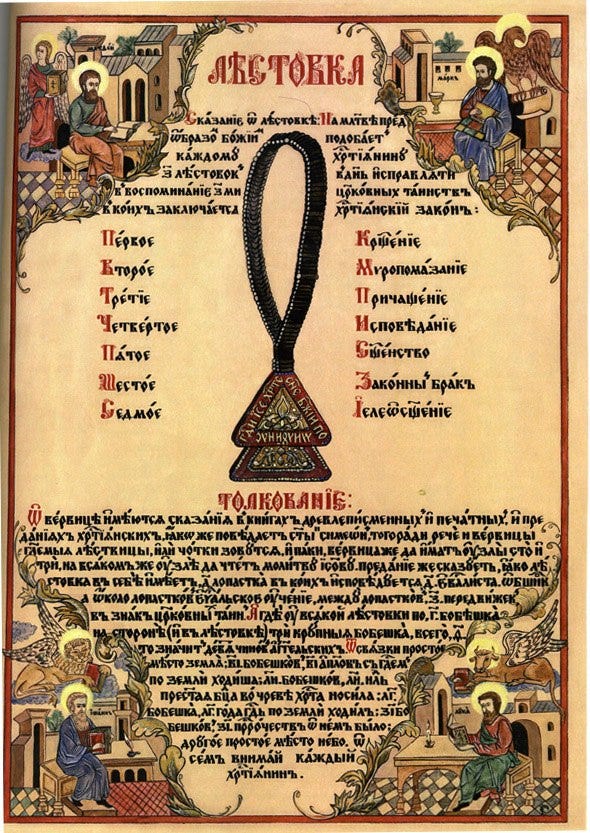 матѳей
марко
лѣстовка
Сказанїе ѿ лѣстовкѣ: На млтвѣ пред
ѡбразо҆ бж҃їи подобаетъ
каждому хр҃тїѧнину
з҃ лѣстовокъ в днь исправлѧти
в воспоминанїе з҃ми цр҃ковныхъ таинствъ
в коихъ заключаетсѧ хр҃тїѧнскїй законъ:
Первое Крщ҃енїе
Второе Мѵропомазанїе
Третїе Причащенїе
Четвертое Исповѣданїе
Пѧтое Сщ҃енство
Шестое Законныи бракъ
Седмое Їелеѡсщ҃енїе
толкованїе:
Ѿ вервицѣ имѣютсѧ сказанїѧ в книгахъ древлеписменныхъ и печатныхъ, и пре
данїѧхъ хр҃тїѧнскихъ, ꙗко же повѣдаетъ ст҃ыи симеѡн, тогѡ ради рече и вервицы
гл҃емыѧ лѣствицы, или чотки зовутсѧ, и паки, вервица же да иматъ оузлы сто и
три, на всѧкомъ же оузлѣ да чтетъ молитву іс҃ову. преданїе же сказуетъ, ꙗко лѣ
стовка в себѣ имѣетъ, д҃ лопастка в коихъ исповѣдуетсѧ, д҃ еѵ҃алиста.
ѡколо лопастковъ еѵ҃альское оученїе, между лопастковъ, з҃ передвижек
в знакъ цр҃ковныхъ таинъ. А где оу всѧкой лѣстовки по, г҃ бобышка
на сторонѣ (и в лѣстовкѣ) три крупныѧ бобышка, всего, ѳ҃
то значитъ девѧ чинов аггельскихъ. Ѿ свѧзки простое
мѣсто землѧ: в҃і бобышковъ, в҃і апⷭ҇ловъ съ гдⷭ҇емъ
по земли ходиша: л҃и бобышков, л҃и, нль
прест҃аѧ бц҃а во чревѣ хр҃та носила: л҃г
бобышка, л҃г года гдⷭ҇ь по земли ходилъ: з҃і бо
бышков, з҃і пророчествъ ѡ немъ было:
другое простое мѣсто небо. Ѿ
семъ внимай каждый
хр҃тїѧнин.